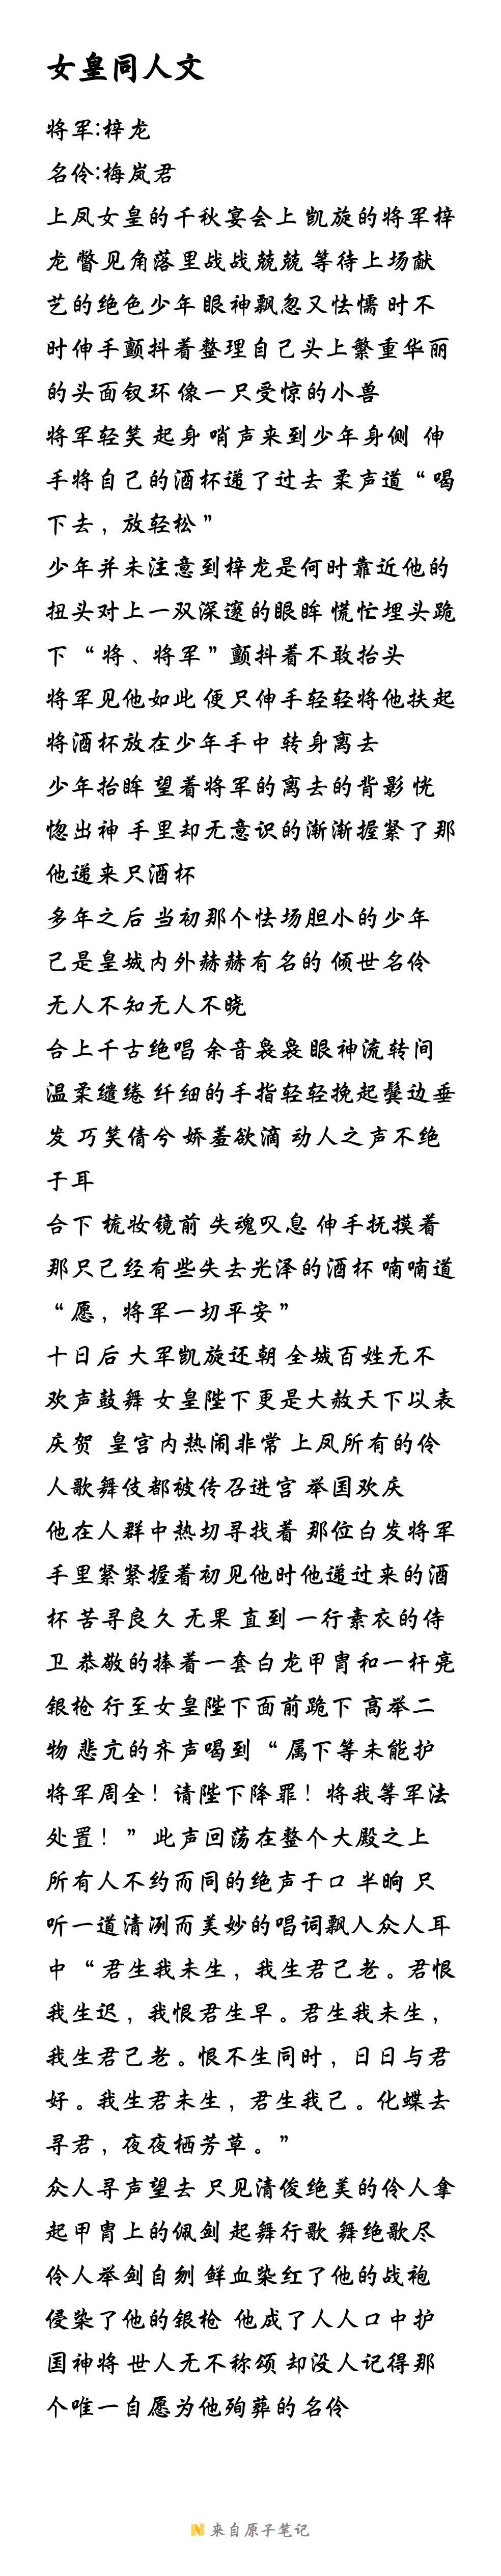 女皇同人文
将军:梓龙
名伶:梅岚君
上凤女皇的千秋宴会上 凯旋的将军梓
龙 瞥见角落里战战兢兢 等待上场献
艺的绝色少年 眼神飘忽又怯懦 时不
时伸手颤抖着整理自己头上繁重华丽
的头面钗环 像一只受惊的小兽
将军轻笑 起身 哨声来到少年身侧 伸
手将自己的酒杯递了过去 柔声道“喝
下去，放轻松”
少年并未注意到梓龙是何时靠近他的
扭头对上一双深邃的眼眸 慌忙埋头跪
下 “将、将军”颤抖着不敢抬头
将军见他如此 便只伸手轻轻将他扶起
将酒杯放在少年手中 转身离去
少年抬眸 望着将军的离去的背影 恍
惚出神 手里却无意识的渐渐握紧了那
他递来只酒杯
多年之后 当初那个怯场胆小的少年
已是皇城内外赫赫有名的 倾世名伶
无人不知无人不晓
台上千古绝唱 余音袅袅 眼神流转间
温柔缱绻 纤细的手指轻轻挽起鬓边垂
发 巧笑倩兮 娇羞欲滴 动人之声不绝
于耳
台下 梳妆镜前 失魂叹息 伸手抚摸着
那只已经有些失去光泽的酒杯 喃喃道
“愿，将军一切平安”
十日后 大军凯旋还朝 全城百姓无不
欢声鼓舞 女皇陛下更是大赦天下以表
庆贺 皇宫内热闹非常 上凤所有的伶
人歌舞伎都被传召进宫 举国欢庆
他在人群中热切寻找着 那位白发将军
手里紧紧握着初见他时他递过来的酒
杯 苦寻良久 无果 直到 一行素衣的侍
卫 恭敬的捧着一套白龙甲胄和一杆亮
银枪 行至女皇陛下面前跪下 高举二
物 悲亢的齐声喝到 “属下等未能护
将军周全！请陛下降罪！将我等军法
处置！” 此声回荡在整个大殿之上
所有人不约而同的绝声于口 半晌 只
听一道清冽而美妙的唱词飘入众人耳
中 “君生我未生，我生君已老。君恨
我生迟，我恨君生早。君生我未生，
我生君已老。恨不生同时，日日与君
好。我生君未生，君生我已。化蝶去
寻君，夜夜栖芳草。”
众人寻声望去 只见清俊绝美的伶人拿
起甲胄上的佩剑 起舞行歌 舞绝歌尽
伶人举剑自刎 鲜血染红了他的战袍
侵染了他的银枪 他成了人人口中护
国神将 世人无不称颂 却没人记得那
个唯一自愿为他殉葬的名伶
来自原子笔记